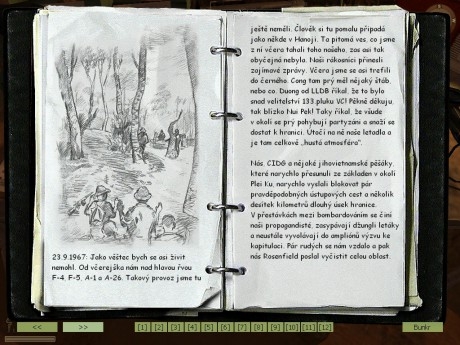 23.9.1967: Jako věštec bych se asi živit
nemohl. Od včerejška nám nad hlavou řvou
F-4, F-5, A-1 a A-26. Takový provoz jsme tu
ještě neměli. Člověk si tu pomalu připadá
jako někde v Hanoji. Ta pitomá ves, co jsme
z ní včera tahali toho našeho, zas asi tak
obyčejná nebyla. Naši rákosníci přinesli
zajímavé zprávy. Včera jsme se asi trefili
do černého. Cong tam prý měl nějaký štáb,
nebo co. Duong od LLDB říkal, že to bylo
snad velitelství 133 pluku VC! Pěkně děkuju,
tak blízko Nui Pek! Taky říkal, že všude
v okolí se prý pohybují partyzáni a snaží se
dostat k hranici. Útočí na ně naše letadla a
je tam celkově „hustá atmosféra".
Nás, CIDG a nějaké jihovietnamské pěšáky,
které narychlo přesunuli ze základen v okolí
Plei Ku, narychlo vyslali blokovat pár
pravděpodobných ústupových cest a několik
desítek kilometrů dlouhý úsek hranice.
V přestávkách mezi bombardováním se činí
naši propagandisté, zasypávají džungli letáky
a neustále vyvolávají do ampliónů výzvu ke
kapitulaci. Pár rudých se nám vzdalo a pak
nás Rosenfield poslal vyčistit celou oblast.
<< >> [1] [2] [3] [4] [5] [6] [7] [8] [9] [10] [11] [12] Bunkr